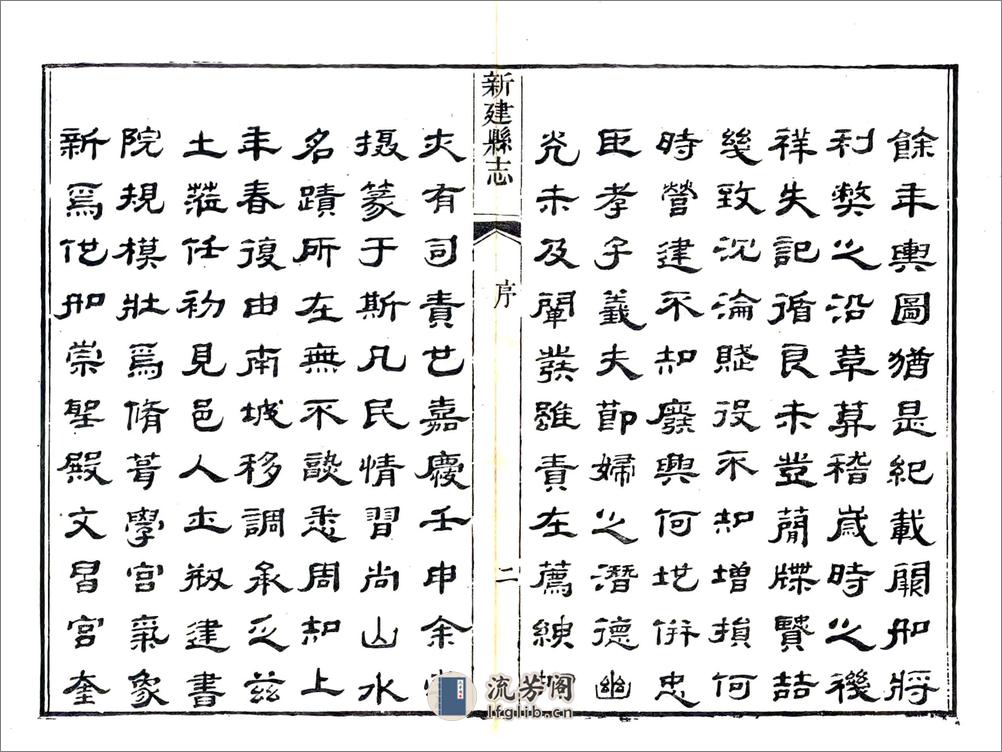 餘年輿圖猶是紀載闕如將
利獘之沿革莫稽歲時之禨
祥失記循良未登蕳牒賢喆
幾致沉淪賦役不知增損何
時營建不知廢興何地併忠
臣孝子義夫節婦之潛德幽
光未及闡發雖責在薦紳
新建縣志
序
二
夫有司責也嘉慶壬申余
攝篆于斯凡民情習尚山水
名蹟所在無不諏悉周知上
年春復由南城移調承乏茲
土蒞任初見邑人士刱建書
院規模壯焉脩葺學宮氣象
新焉他如崇聖殿文昌宮奎
流芳阁
lfglib.cn